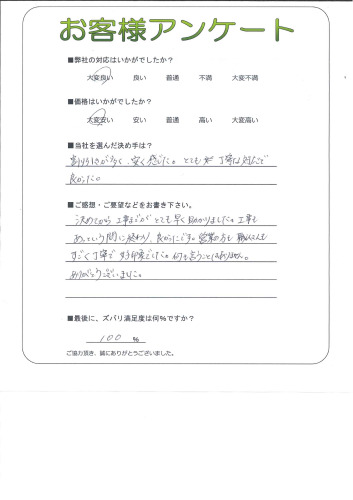 お客様アンケート
■弊社の対応はいかがでしたか？
大変良い 良い 普通 不満 大変不満
■価格はいかがでしたか？
大変安い 安い 普通 高い 大変高い
■当社を選んだ決め手は？
割引きが多く、安く感じた。とても 丁寧な対応で
良かった。
■ご感想・ご要望などをお書き下さい。
決めてから工事までがとても早く助かりました。工事も
あっという間に終わり、良かったです。営業の方も職人さんも
すごく丁寧で好印象でした。何も言うことはありません。
ありがとうございました。
■最後に、ズバリ満足度は何％ですか？
100 %
ご協力頂き、誠にありがとうございました。